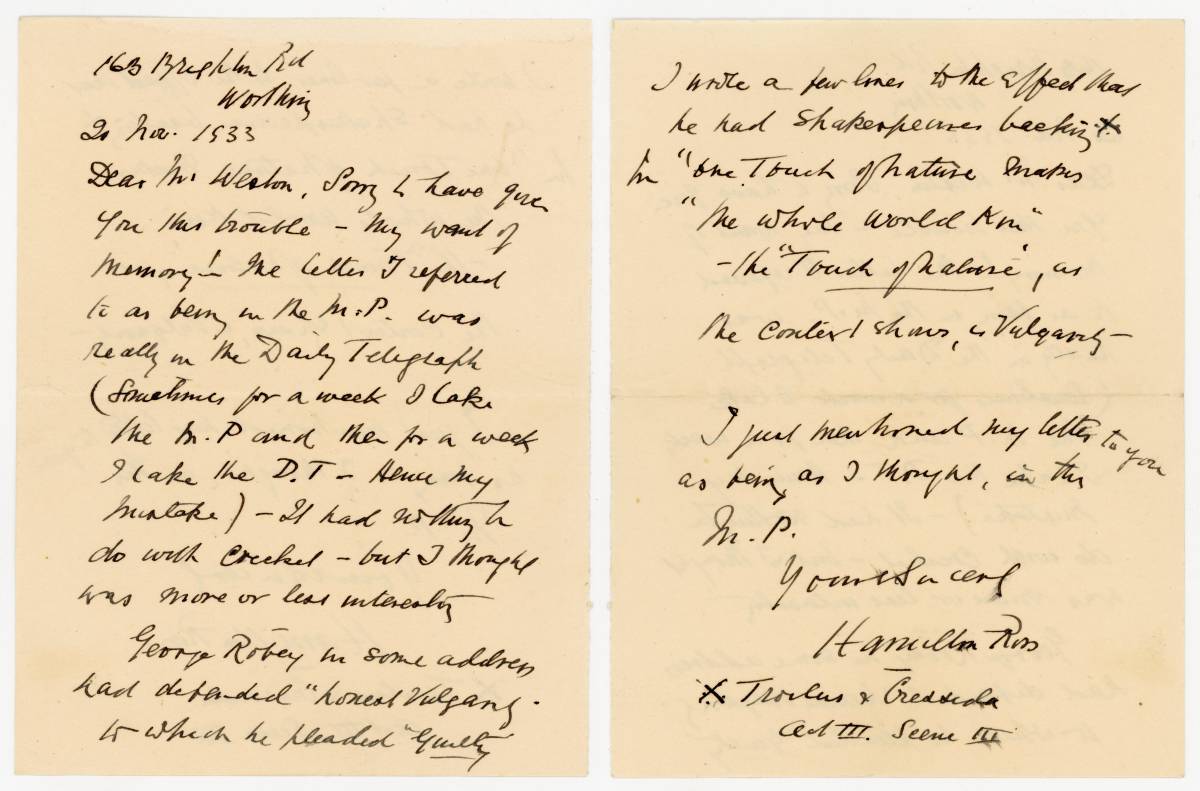 163 Brighton Rd
Worthing
20 Nov. 1933
Dear Mr Weston, Sorry to have given
you this trouble – my want of
memory! – The letter I referred
to as being in the M.P. was
really in the Daily Telegraph
(Sometimes for a week I take
the M.P and then for a week
I take the D.T – Hence my
mistake) – It had nothing to
do with cricket – but I thought
was more or less interesting
George Robey in some address
had defended "honest Vulgarity –
to which he pleaded "Guilty"
I wrote a few lines to the effect that
he had Shakespeares backing X
in "One Touch of Nature makes
"the whole world Kin"
– the "Touch of Nature", as
the context shows, is Vulgarity –
I just mentioned my letter to you
as being, as I thought, in the
M.P.
Yours Sincerely
Hamilton Ross
X Troilus & Cressida
Act III. Scene III